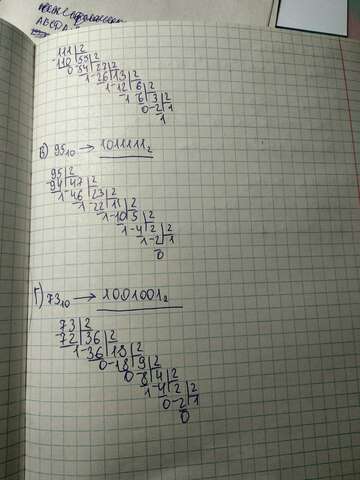 111|2
110 55|2
0 54 27|2
1-26 13|2
1-12 6|2
1 6 3|2
0-2 1
1
В) 95₁₀ → 1011111₂
95|2
94 47|2
1-46 23|2
1-22 11|2
1-10 5|2
1-4 2|2
1-2 1
0
Г) 73₁₀ → 1001001₂
73|2
72 36|2
1-36 18|2
0-18 9|2
0-8 4|2
1-4 2|2
0-2 1
0